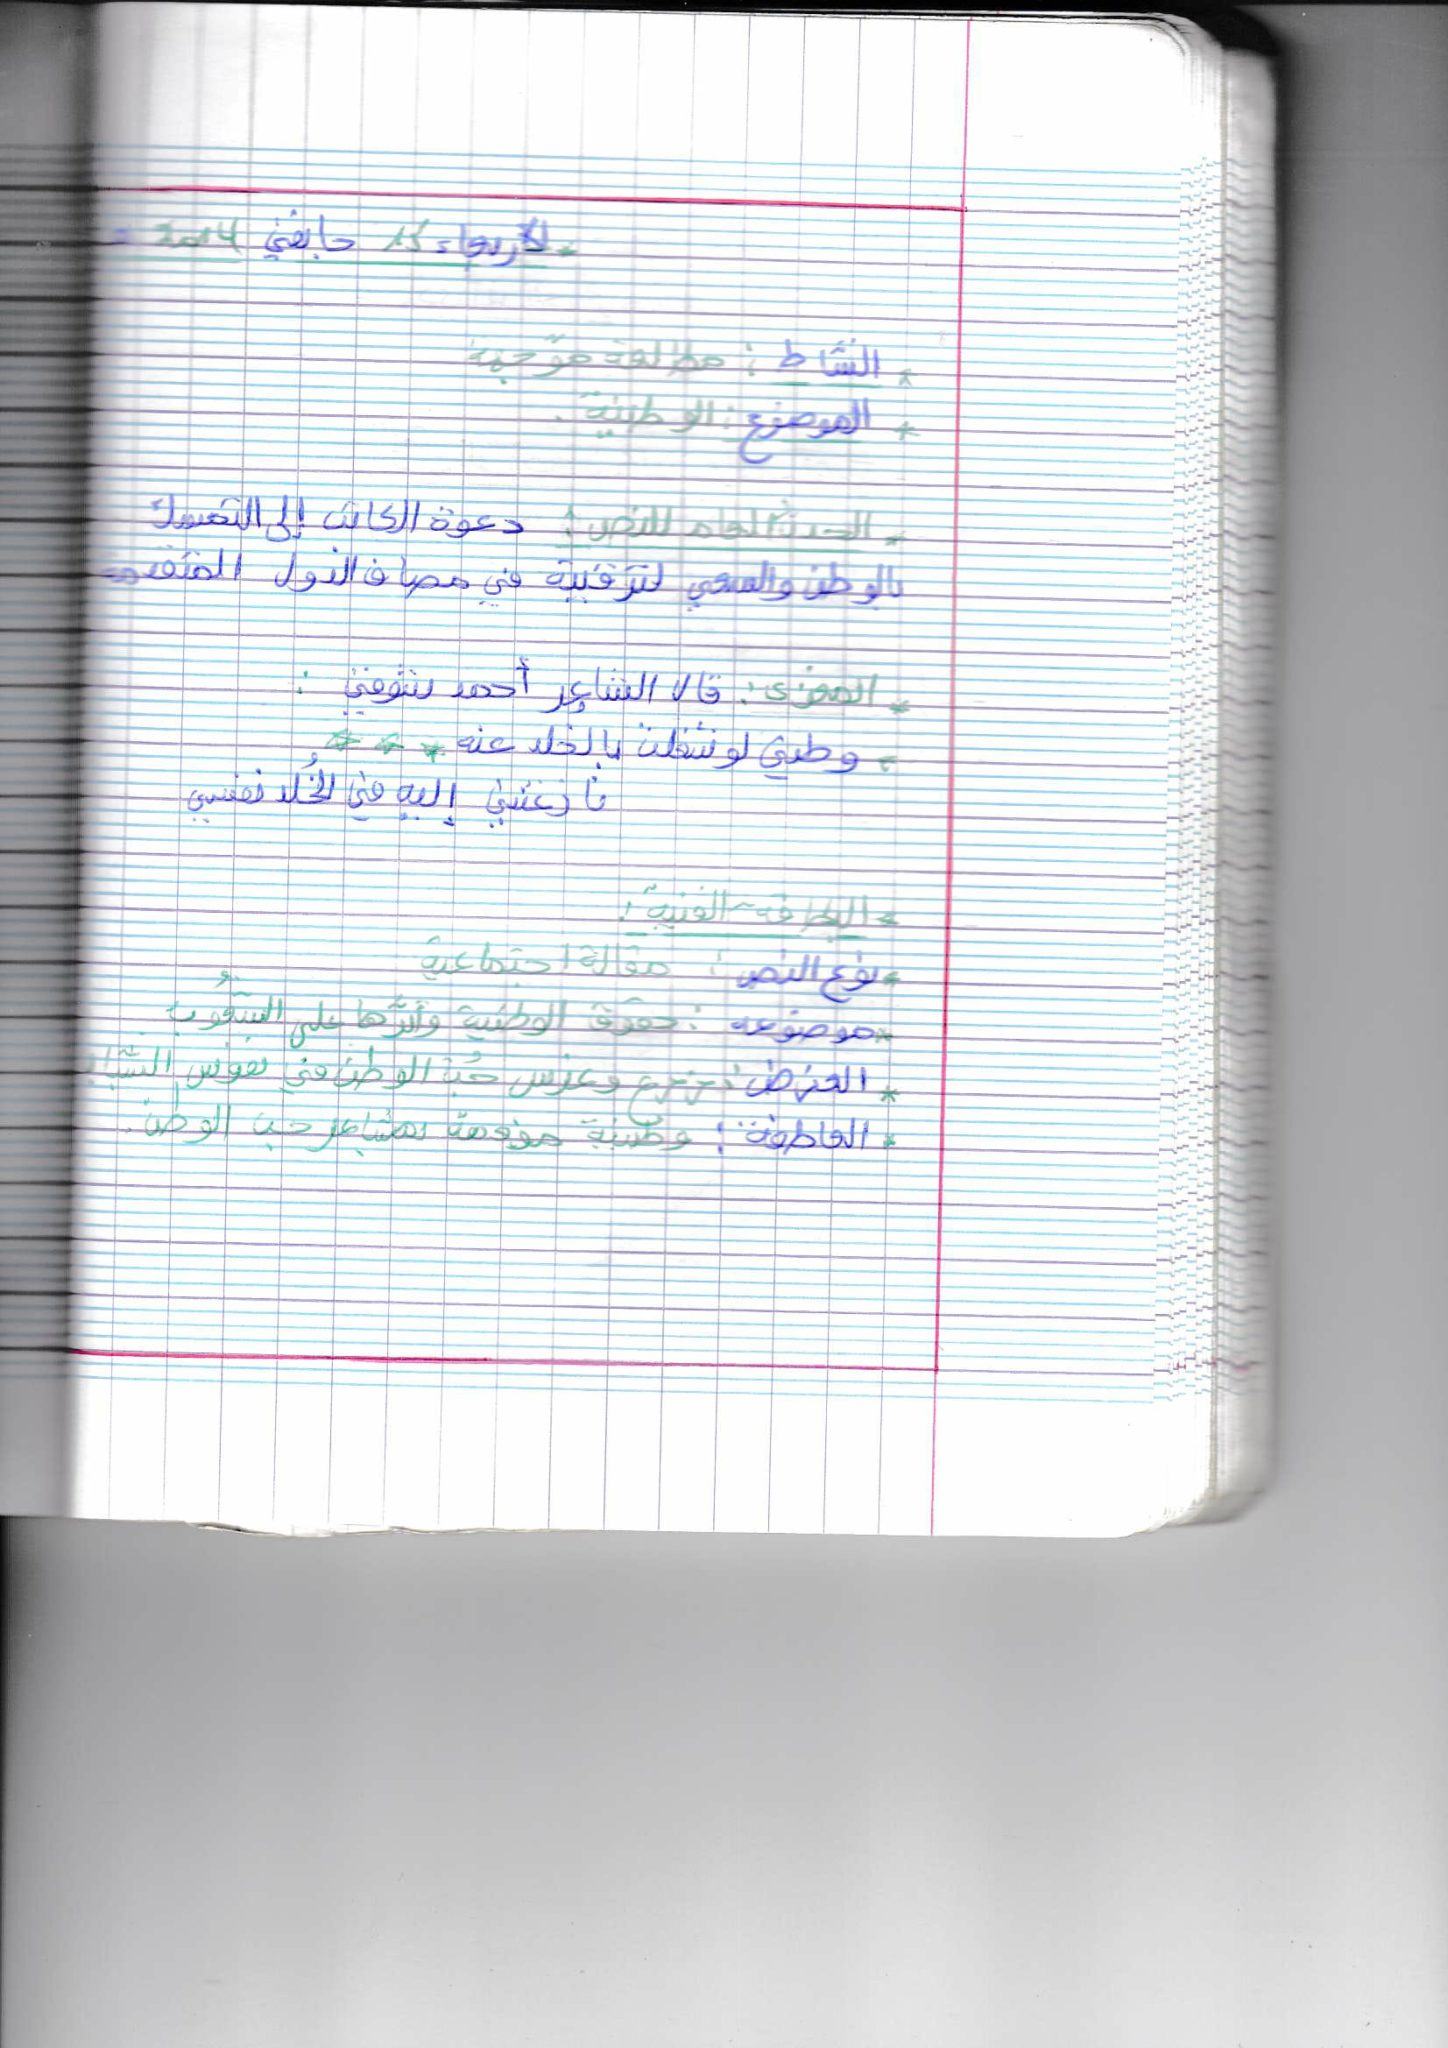 الأربعاء 15 جانفي 2014
* النشاط : مطالعة موجهة
* الموضوع : الوطنية .
* الحدث العام للنص : دعوة الكاتب إلى التمسك
بالوطن والسعي لترقيته في مصاف الدول المتقدمة
* المغزى : قال الشاعر أحمد شوقي :
- وطني لو شغلت بالخلد عنه * * *
نازعتني إليه في الخُلد نفسي
* البطاقة الفنية :
* نوع النص : مقالة اجتماعية
* موضوعه : حقوق الوطنية وأثرها على الشعوب
* الغرض : زرع وغرس حُبّ الوطن في نفوس الشباب
* العاطفة : وطنية مفعمة بمشاعر حب الوطن .